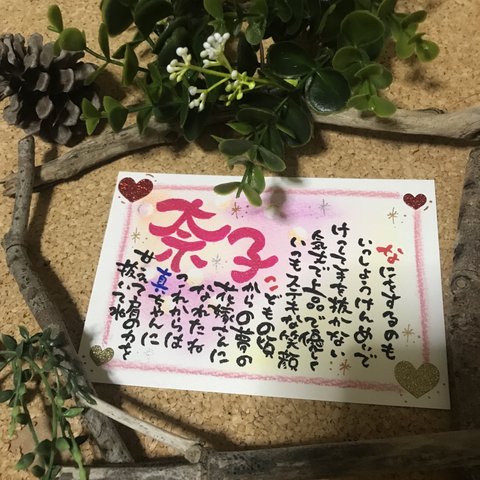 奈子
なにをするのも
いっしょうけんめいで
けっして手を抜かない
気丈で上品で優しく
いつもステキな笑顔
こどもの頃
からの夢の
花嫁さんに
なれたね
これからは
真ちゃんに
世
抜いて肩の力を
抜いてね